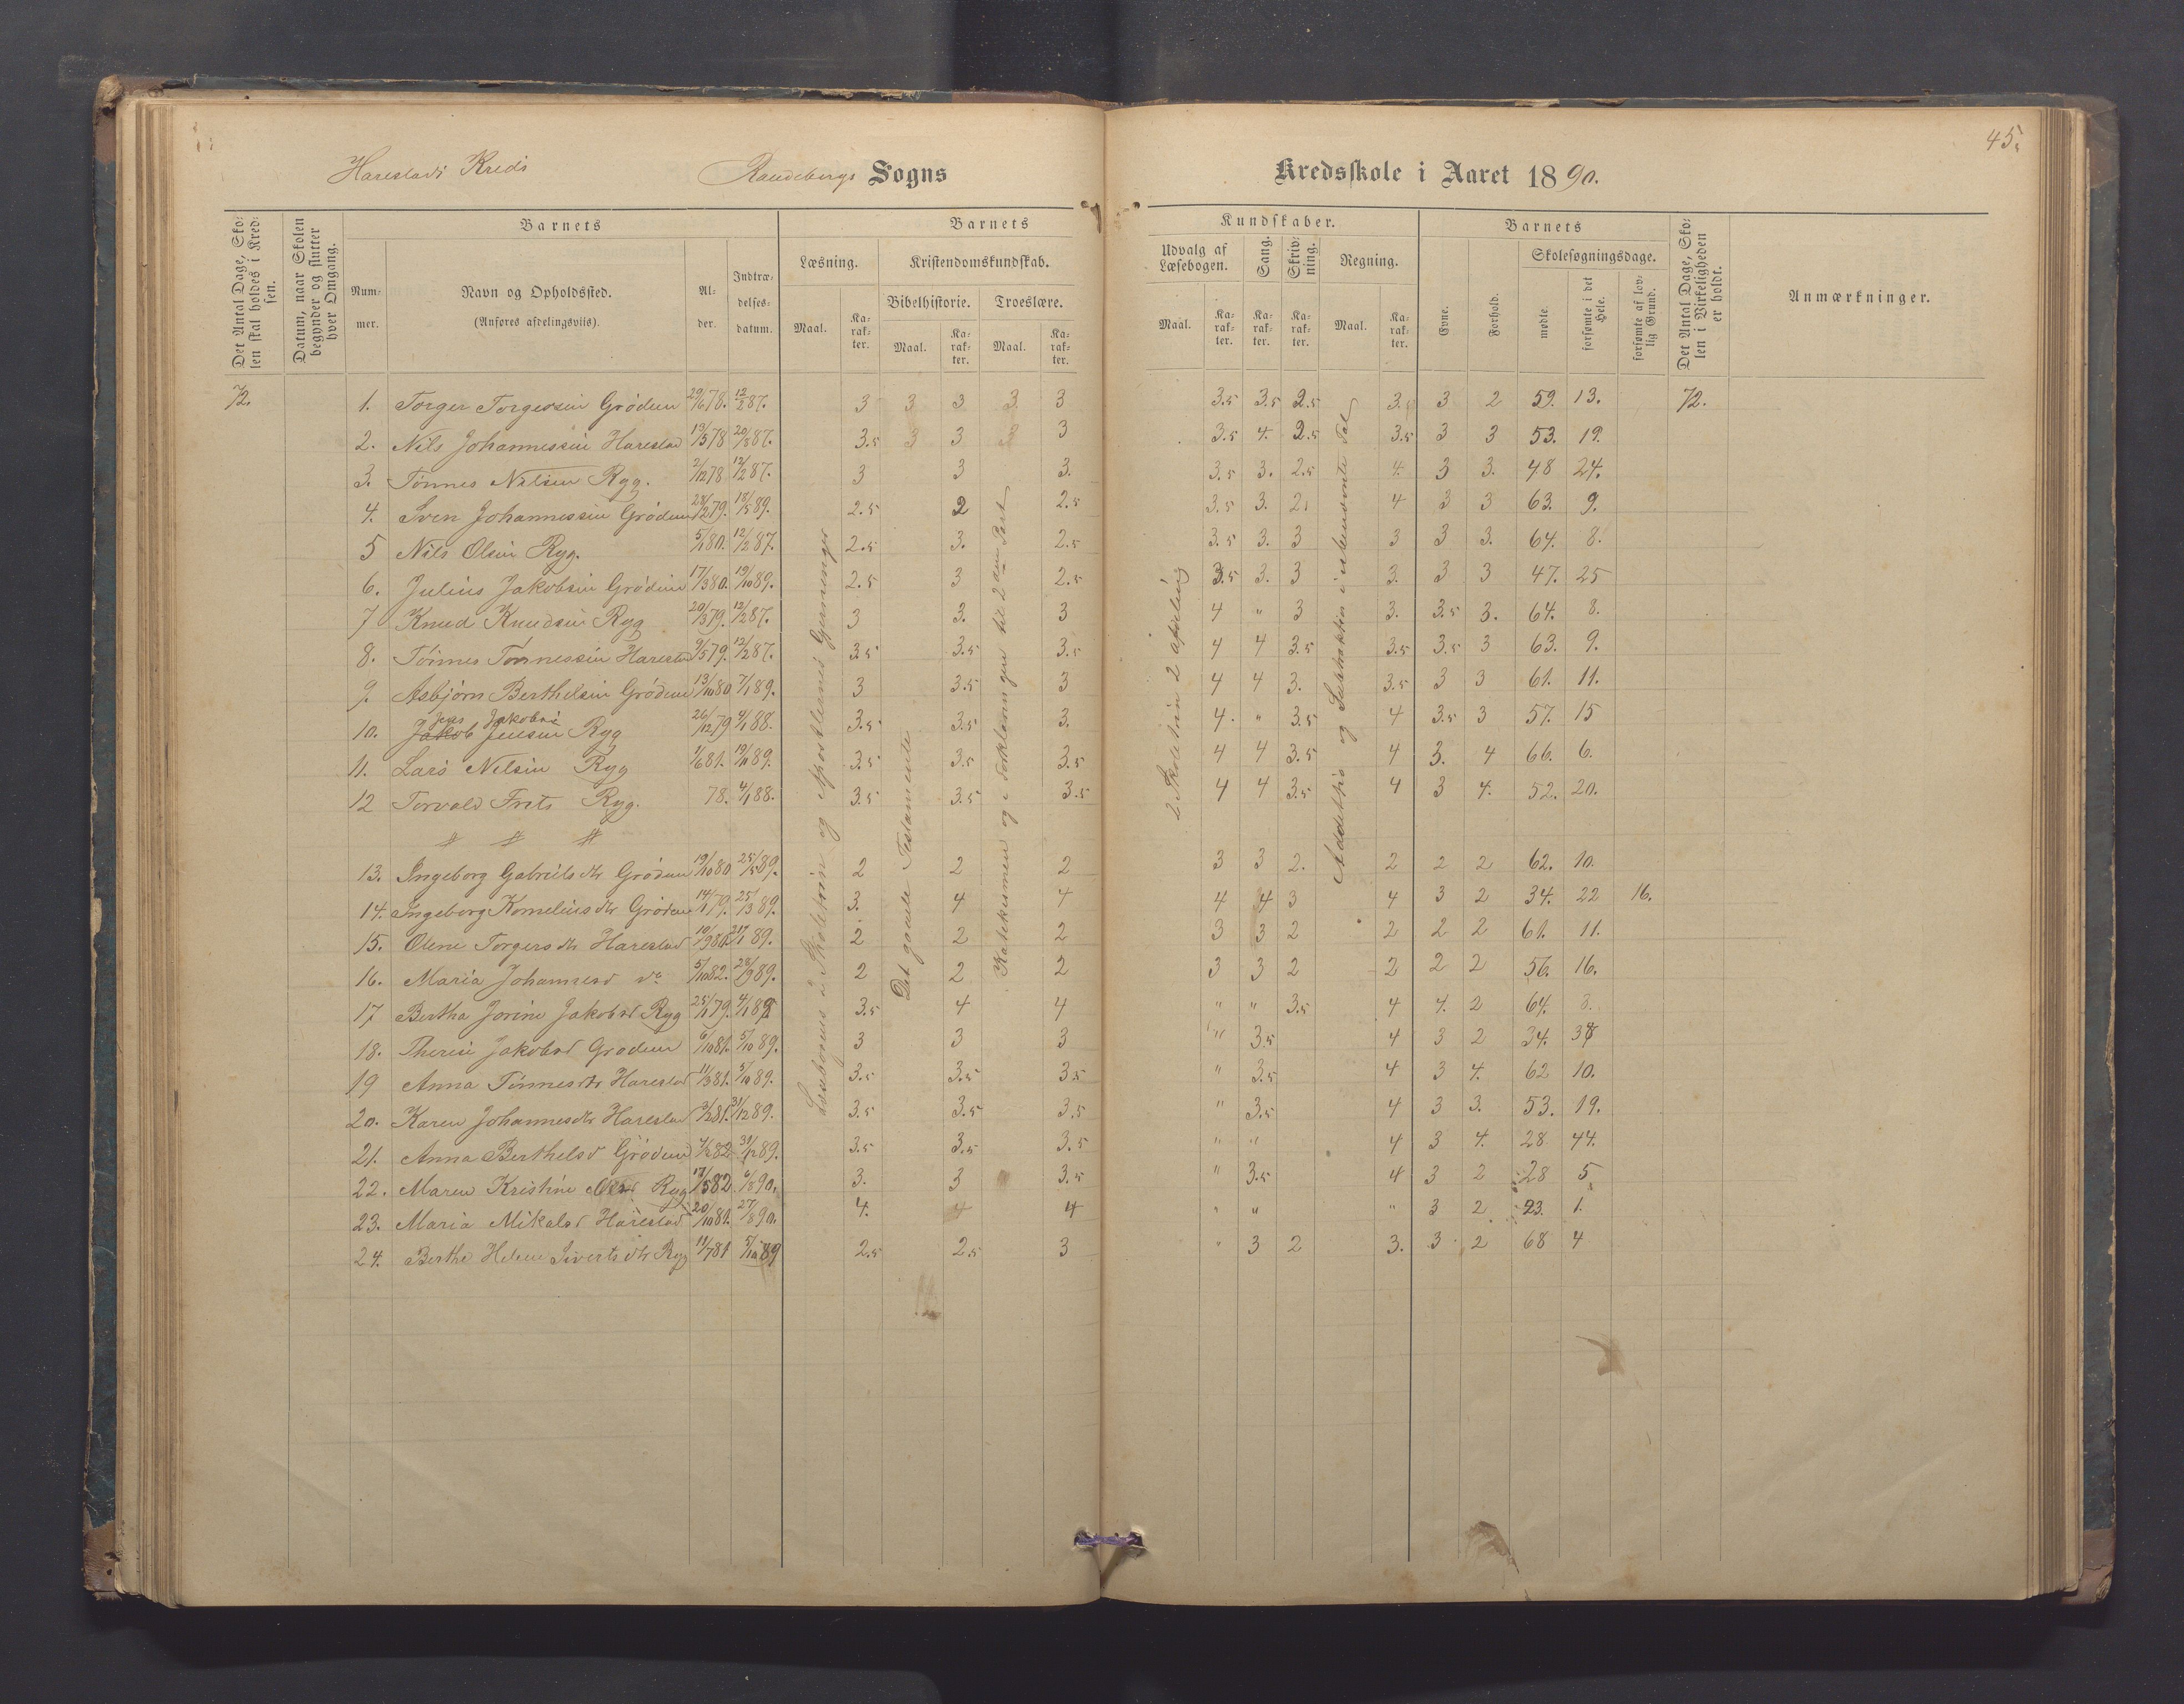 45.
Harestads Kreds Randebergs Sogns Kredsskole i Aaret 1890.
Det Antal Dage, Skolen skal holdes i Kredsen.
Datum, naar Skolen begynder og slutter hver Omgang.
Barnets
Nummer.
Navn og Opholdssted.
(Anføres afdelingsviis).
Alder.
Indtrædelsesdatum.
Barnets
Læsning.
Kristendomskundskab.
Bibelhistorie. Troeslære.
Maal. Karakter. Maal. Karakter. Maal. Karakter.
Kundskaber.
Udvalg af Læsebogen.
Sang.
Skrivning.
Regning.
Maal. Karakter. Karakter. Karakter. Maal. Karakter.
Barnets
Evne.
Forhold.
Skolesøgningsdage.
mødte.
forsømte i det Hele.
forsømte af lovlig Grund.
Det Antal Dage, Skolen i Virkeligheden er holdt.
Anmærkninger.
72. 1. Torger Torgersen Gröden 29/6 78. 12/2 87. 3 3 3 3 3 3.5 3.5 2.5 3. 3 2 59. 13. 72.
2. Nils Johannessen Harestad 19/5 78 20/8 87. 3.5 3 3 3 3 3.5 4. 2.5 3.5 3 3 53. 19.
3. Tönnes Nilsen Ryg. 2/12 78 12/2 87. 3 3 3. 3.5 3. 2.5 4. 3 3. 48 24.
4. Sven Johannessen Gröden 28/2 79. 18/5 89. 2.5 2 2.5 3.5 3. 2. 4 3 3 63. 9.
5 Nils Olsen Ryg. 5/1 80. 12/2 87. 2.5 3. 2.5 3.5 3. 3 3 3 3. 64. 8.
6. Julius Jakobsen Gröden 17/3 80. 19/10 89. 2.5 3 2.5 3.5 3. 3 3. 3 3 47. 25
7 Knud Knudsen Ryg 20/3 79. 12/2 87. 3 3. 3 4 " 3 3. 3.5 3. 64. 8.
8. Tönnes Tönnessen Harestad 9/5 79. 12/2 87. 3.5 3.5 3.5 4 4 3.5 3.5 3.5 3 63. 9.
9. Asbjörn Berthelsen Gröden 13/10 80 7/1 89. 3 3.5 3 4 4 3. 3.5 3 3 61. 11.
Jens Jakobsen
10. Jakob Jensen Ryg 26/12 79 4/1 88. 3.5 3.5 3. 4. " 3.5 4 3.5 3 57. 15
11. Lars Nilsen Ryg 1/6 81. 19/11 89. 3.5 3.5 3.5 4 4 3.5 4 3. 4 66. 6.
12 Torvald Frits Ryg. 78. 4/1 88. 3.5 3.5 3.5 4 4 3.5 4 3 4. 52. 20.
13. Ingeborg Gabriels dtr Gröden 19/10 80 25/5 89. 2 2 2 3 3 2. 2 2 2 62. 10.
14. Ingeborg Kornelius dtr Gröden 14/1 79. 25/3 89. 3. 4 4 4 4 3 4 3 2 34. 22 16.
15. Olene Torgers dtr Harestad 10/9 80. 21/1 89. 2 2 2 3 3 2 2 2 2 61. 11.
16. Maria Johannesd do 5/10 82. 28/9 89. 2 2 2 3 3 2 2 2 2 56. 16.
17 Bertha Jorine Jakobsd Ryg 25/1 79. 4/1 88 3.5 4 4 " " 3.5 4 4. 2 64. 8.
18. Therese Jakobsd Gröden 6/10 81. 5/10 89. 3 3 3 " 3.5 4 3 2 34. 38
19 Anna Tönnesdtr Harestad 11/3 81. 5/10 89. 3.5 3.5 3.5 " 3.5 4 3 4. 62 10.
20. Karen Johannesdtr Harestad 3/2 81. 31/12 89. 3.5 3.5 3.5 " 3.5 4 3 3. 53. 19.
21. Anna Berthelsd Gröden 4/2 82. 31/12 89. 3.5 3.5 3.5 " " 4 3 4. 28 44.
22. Maren Kristine Olsd Ryg 17/5 82 6/8 90. 3. 3 3.5 " 3.5 4 3 2 28 5
23. Maria Mikalsd Harestad 20/10 81. 27/8 90. 4. 4 4 " " " 3 2 23. 1.
24. Berthe Helene Siverts dtr Ryg 11/7 81 5/10 89 2.5 2.5 3 " 3 2 3. 3 2 68 4
Læsbogens 2 Skoletrin og Apostlernes Gjerninger
Det gamle Testamente
Katekismen og Forklaringen til 2 den Part
2 Skoletrin 2 afdeling
Addition og Subtraktion i ubenævnte Tal